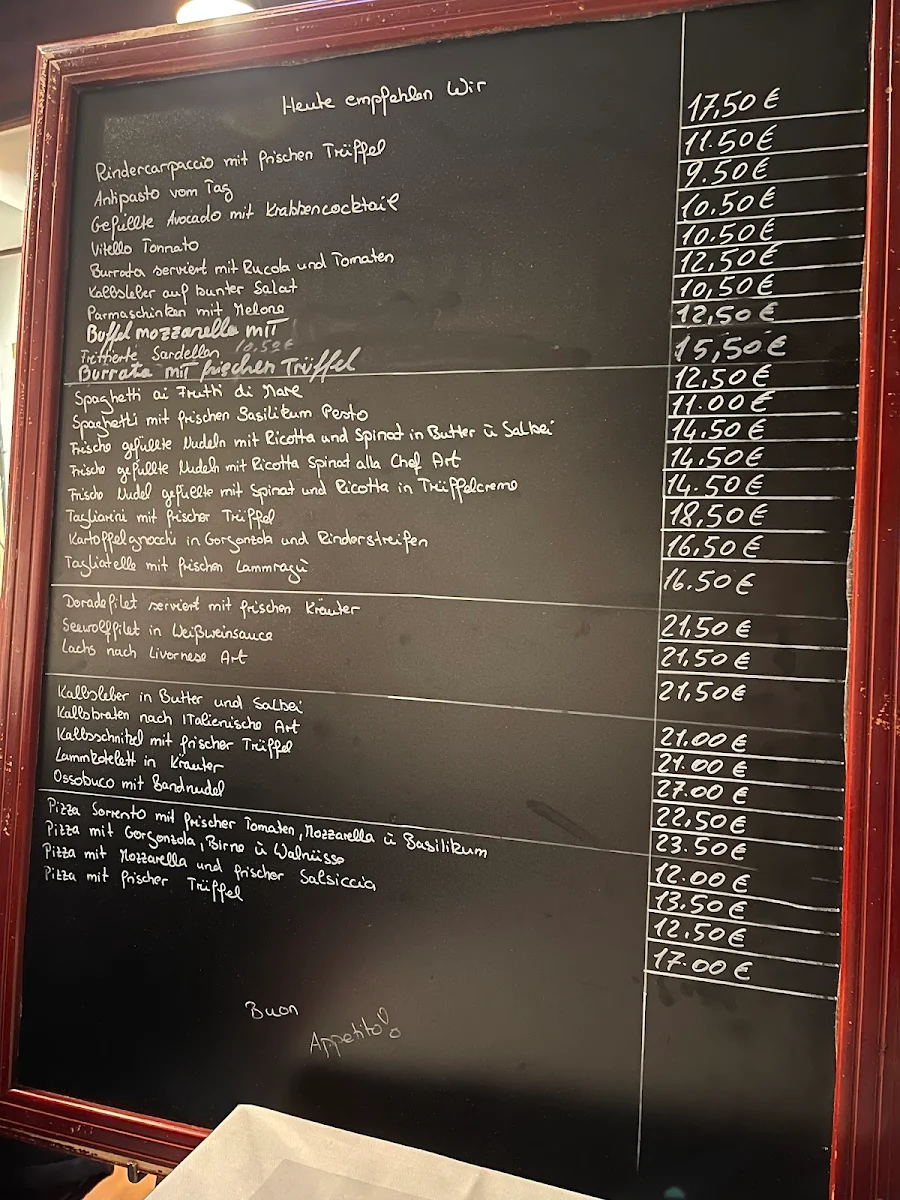 Heute empfehlen Wir
Rindercarpaccio mit frischen Trüffel 17,50 €
Antipasto vom Tag 11.50 €
Gefüllte Avocado mit Krabbencocktail 9.50 €
Vitello Tonnato 10,50 €
Burrata serviert mit Rucola und Tomaten 10.50 €
Kalbsleber auf bunter Salat 12,50 €
Parmaschinken mit Melone 10,50 €
Büffel mozzarella mit 12,50 €
Frittierte Sardellen 10,50 €
Burrata mit frischen Trüffel 15,50 €
Spaghetti ai Frutti di Mare 12,50 €
Spaghetti mit frischen Basilikum Pesto 11.00 €
Frische gefüllte Nudeln mit Ricotta und Spinat in Butter ü Salbei 14.50 €
Frische gefüllte Nudeln mit Ricotta Spinat alla Chef Art 14.50 €
Frische Nudel gefüllte mit Spinat und Ricotta in Trüffelcreme 14.50 €
Tagliarini mit frischer Trüffel 18,50 €
Kartoffelgnocchi in Gorgonzola und Rinderstreifen 16,50 €
Tagliatelle mit frischen Lammragù 16.50 €
Doradefilet serviert mit frischen Kräuter 21,50 €
Seewolffilet in Weißweinsauce 21,50 €
Lachs nach Livornese Art 21,50 €
Kalbsleber in Butter und Salbei 21.00 €
Kalbsbraten nach Italienische Art 21.00 €
Kalbsschnitzel mit frischer Trüffel 27.00 €
Lammkotelett in Kräuter 22,50 €
Ossobuco mit Bandnudel 23.50 €
Pizza Sorrento mit frischer Tomaten, Mozzarella ü Basilikum 12.00 €
Pizza mit Gorgonzola, Birne ü Walnüsse 13.50 €
Pizza mit Mozzarella und frischer Salsiccia 12.50 €
Pizza mit frischer Trüffel 17.00 €
Buon
Appetito!